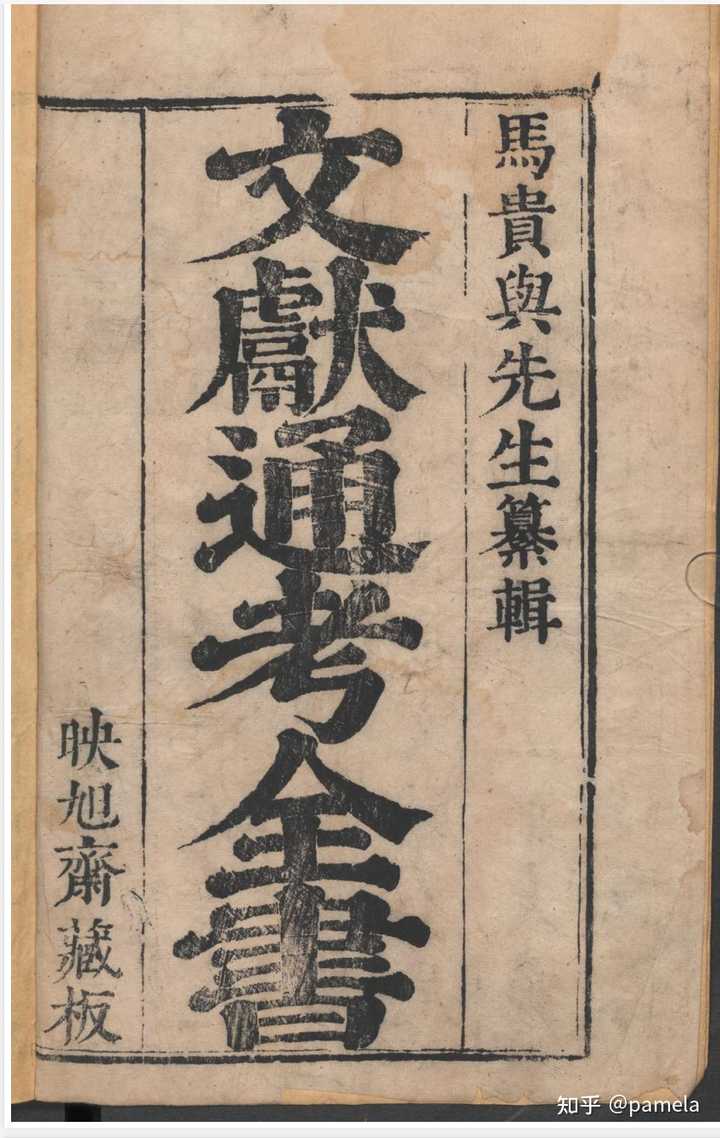 馬貴與先生纂輯
文獻通考全書
映旭齋藏板
知乎 @pamela